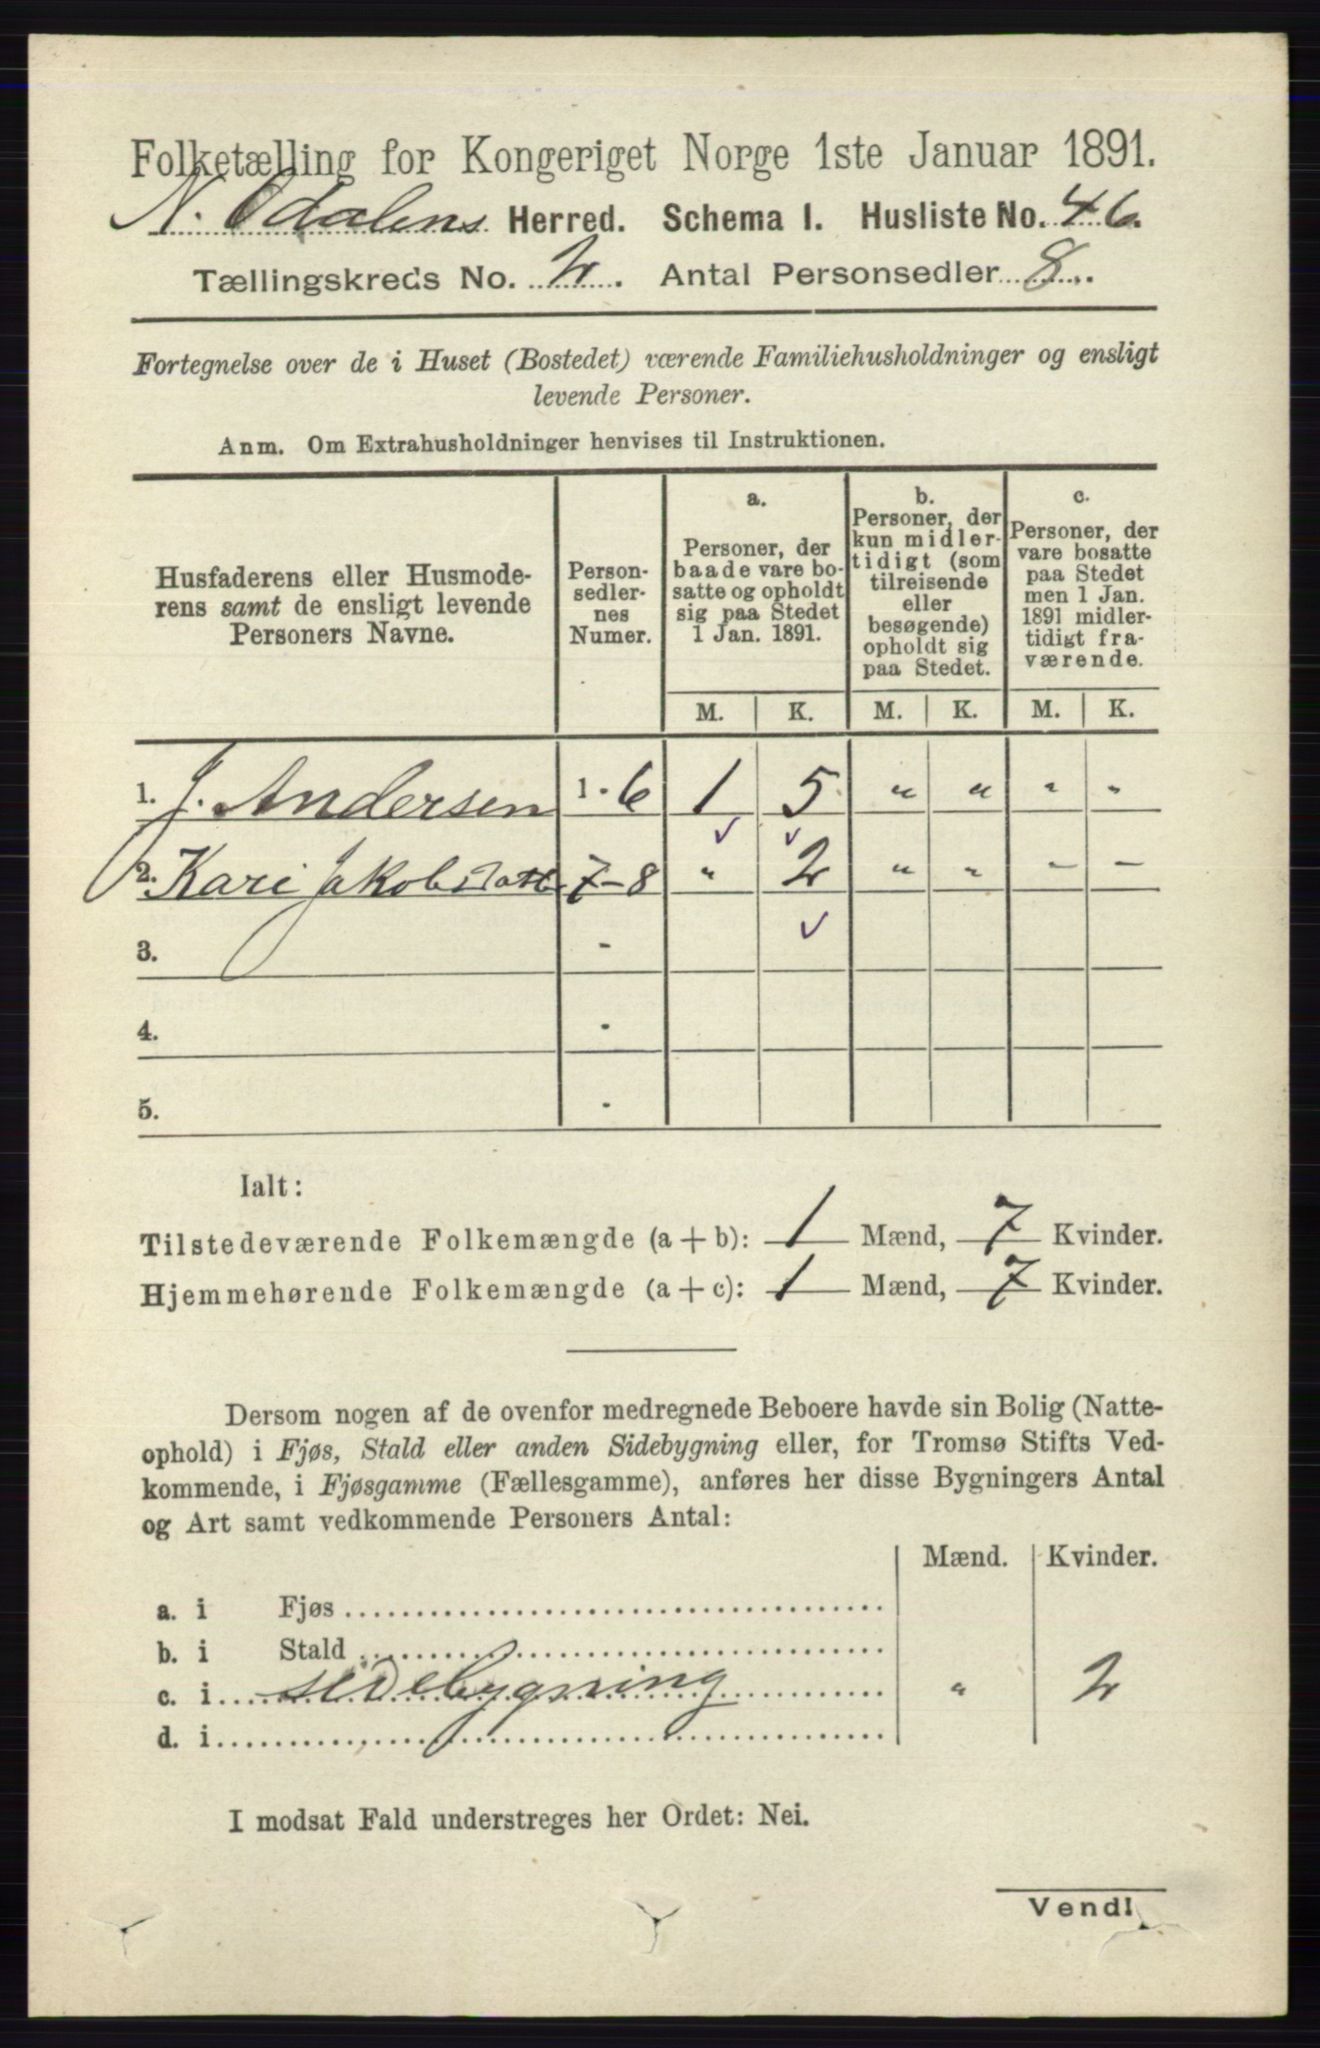 Folketælling for Kongeriget Norge 1ste Januar 1891.
N. Odalens Herred. Schema I. Husliste No. 46.
Tællingskreds No. 2. Antal Personsedler 8.
Fortegnelse over de i Huset (Bostedet) værende Familiehusholdninger og ensligt
levende Personer.
Anm. Om Extrahusholdninger henvises til Instruktionen.
Husfaderens eller Husmode-
rens samt de ensligt levende
Personers Navne.
Person-
sedler-
nes
Numer.
a.
Personer, der
baade vare bo-
satte og opholdt
sig paa Stedet
1 Jan. 1891.
b.
Personer, der
kun midler-
tidigt (som
tilreisende
eller
besøgende)
opholdt sig
paa Stedet.
c.
Personer, der
vare bosatte
paa Stedet
men 1 Jan.
1891 midler-
tidigt fra-
værende.
M. K. M. K. M. K.
1. J. Andersen 1-6 1 5 " " " "
2. Kari Jakobsdatt 7-8 " 2 " " - -
3. -
4. -
5. -
Ialt:
Tilstedeværende Folkemængde (a + b): 1 Mænd, 7 Kvinder.
Hjemmehørende Folkemængde (a + c): 1 Mænd, 7 Kvinder.
Dersom nogen af de ovenfor medregnede Beboere havde sin Bolig (Natte-
ophold) i Fjøs, Stald eller anden Sidebygning eller, for Tromsø Stifts Ved-
kommende, i Fjøsgamme (Fællesgamme), anføres her disse Bygningers Antal
og Art samt vedkommende Personers Antal:
Mænd. Kvinder.
a. i Fjøs
b. i Stald
c. i sidebygning " 2
d. i
I modsat Fald understreges her Ordet: Nei.
Vend!